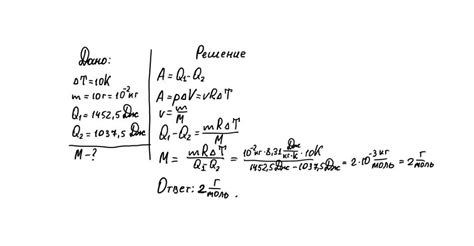 Дано:
ΔT = 10К
m = 10г = 10⁻² кг
Q₁ = 1452,5 Дж
Q₂ = 1037,5 Дж
M - ?
Решение
A = Q₁ - Q₂
A = pΔV = νRΔT
ν = m/M
Q₁ - Q₂ = mRΔT/M
M = mRΔT/(Q₁-Q₂) = (10⁻² кг · 8,31 Дж/(кг·К) · 10К)/(1452,5 Дж - 1037,5 Дж) = 2 · 10⁻³ кг/моль = 2 г/моль
Ответ: 2 г/моль.